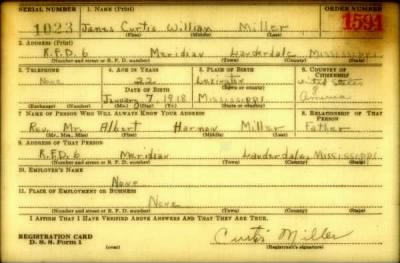 SERIAL NUMBER 1. NAME (Print) ORDER NUMBER
1023 James Curtis William Miller 1591
2. ADDRESS (Print)
R.F.D. 6 Meridian Lauderdale Mississippi
(Number and street or R. F. D. number) (Town) (County) (State)
3. TELEPHONE 4. AGE IN YEARS 5. PLACE OF BIRTH 6. COUNTRY OF CITIZENSHIP
None 22 Lexington United States
DATE OF BIRTH (Town or county) of
January 7, 1918 Mississippi America
(Exchange) (Number) (Mo.) (Day) (Yr.) (State or country)
7. NAME OF PERSON WHO WILL ALWAYS KNOW YOUR ADDRESS 8. RELATIONSHIP OF THAT PERSON
Rev. Mr. Albert Harmon Miller Father
(Mr., Mrs., Miss) (First) (Middle) (Last)
9. ADDRESS OF THAT PERSON
R.F.D. 6 Meridian Lauderdale, Mississippi
(Number and street or R. F. D. number) (Town) (County) (State)
10. EMPLOYER'S NAME
None
11. PLACE OF EMPLOYMENT OR BUSINESS
None
(Number and street or R. F. D. number) (Town) (County) (State)
I AFFIRM THAT I HAVE VERIFIED ABOVE ANSWERS AND THAT THEY ARE TRUE.
REGISTRATION CARD Curtis Miller
D. S. S. Form 1 (over) (Registrant's signature)